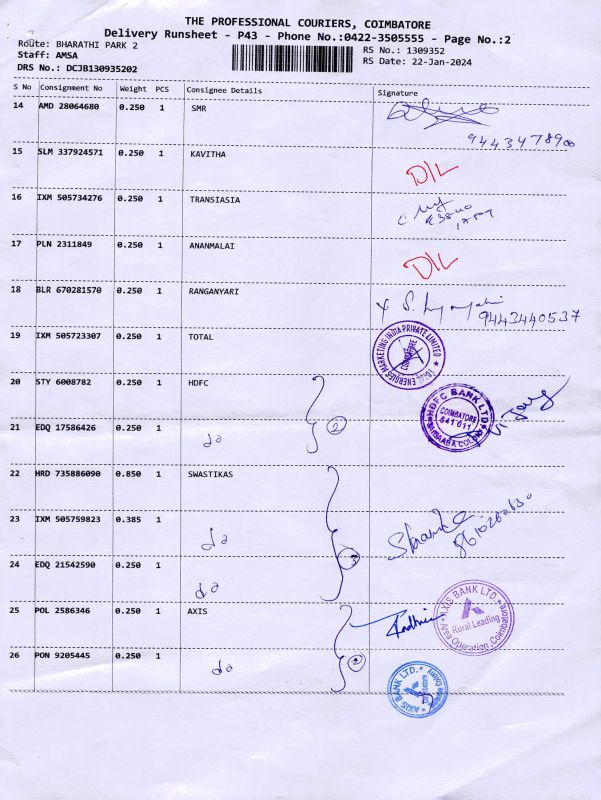 THE PROFESSIONAL COURIERS, COIMBATORE
Delivery Runsheet - P43 - Phone No.:0422-3505555 - Page No.:2
Route: BHARATHI PARK 2
RS No.: 1309352
Staff: AMSA
RS Date: 22-Jan-2024
DRS No.: DCJB130935202
S No Consignment No Weight PCS Consignee Details Signature
14 AMD 28064680 0.250 1 SMR
9443478900
15 SLM 337924571 0.250 1 KAVITHA D/L
16 IXM 505734276 0.250 1 TRANSIASIA
17 PLN 2311849 0.250 1 ANANMALAI D/L
18 BLR 670281570 0.250 1 RANGANYARI
9443440537
19 IXM 505723307 0.250 1 TOTAL
TOTAL ENERGIES MARKETING INDIA PRIVATE LIMITED
COIMBATORE
20 STY 6008782 0.250 1 HDFC
2
HDFC BANK LTD
COIMBATORE
641 011
21 EDQ 17586426 0.250 1 do
22 HRD 735886090 0.850 1 SWASTIKAS
23 IXM 505759823 0.385 1 do
3
24 EDQ 21542590 0.250 1 do
25 POL 2586346 0.250 1 AXIS
AXIS BANK LTD.
Rural Leading
Area Operation, Coimbatore
26 PON 9205445 0.250 1 do
2
AXIS BANK LTD.